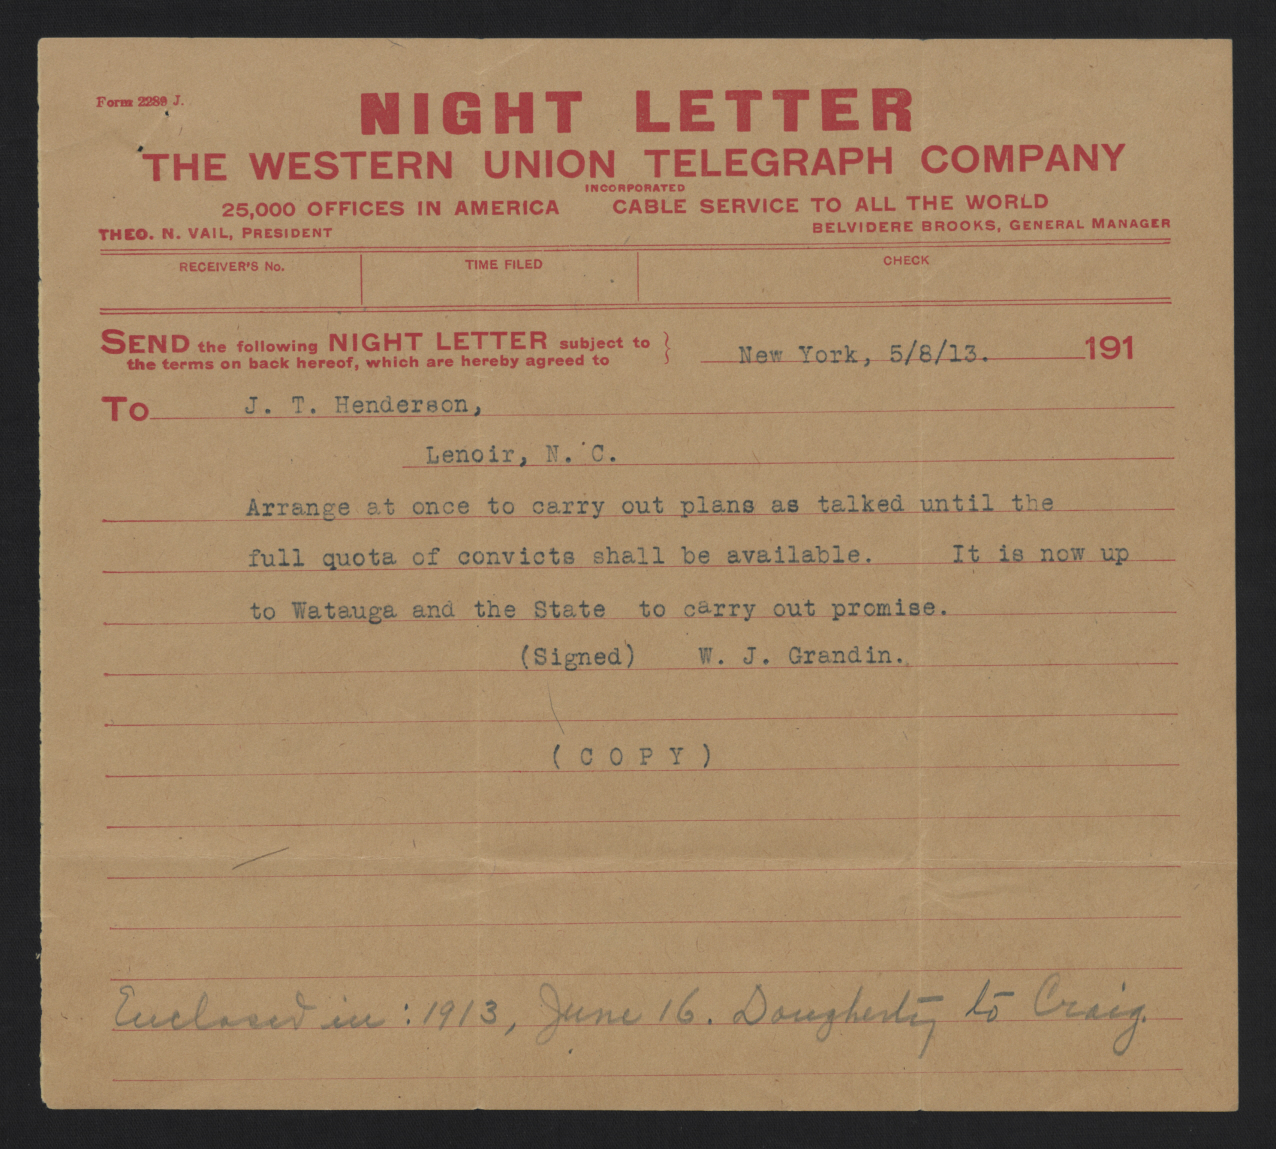 Form 2289 J.
NIGHT LETTER
THE WESTERN UNION TELEGRAPH COMPANY
INCORPORATED
25,000 OFFICES IN AMERICA CABLE SERVICE TO ALL THE WORLD
THEO. N. VAIL, PRESIDENT BELVIDERE BROOKS, GENERAL MANAGER
RECEIVER'S No. TIME FILED CHECK
SEND the following NIGHT LETTER subject to
the terms on back hereof, which are hereby agreed to
New York, 5/8/13. 191
To J. T. Henderson,
Lenoir, N. C.
Arrange at once to carry out plans as talked until the
full quota of convicts shall be available. It is now up
to Watauga and the State to carry out promise.
(Signed) W. J. Grandin.
( C O P Y )
Enclosed in : 1913, June 16. Dougherty to Craig.